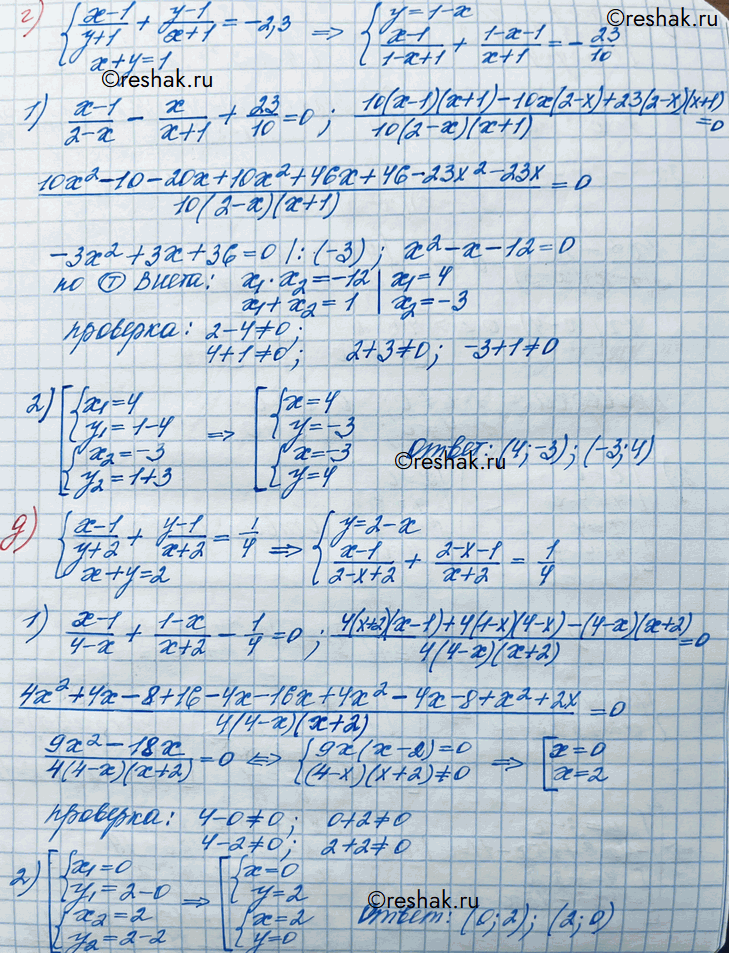 г) { (x-1)/(y+1) + (y-1)/(x+1) = -2,3 ⇒ { y = 1-x
x+y=1 (x-1)/(1-x+1) + (1-x-1)/(x+1) = -23/10
©reshak.ru
1) (x-1)/(2-x) - x/(x+1) + 23/10 = 0 ; (10(x-1)(x+1)-10x(2-x)+23(2-x)(x+1))/(10(2-x)(x+1)) = 0
(10x²-10-20x+10x²+46x+46-23x²-23x)/(10(2-x)(x+1)) = 0
-3x²+3x+36=0 |:(-3) ; x²-x-12=0
по Ⓣ Виета: x₁·x₂=-12 | x₁=4
x₁+x₂=1 | x₂=-3
проверка: 2-4≠0;
4+1≠0; 2+3≠0; -3+1≠0
2) [ { x₁=4 ⇒ [ { x=4
y₁=1-4 y=-3
{ x₂=-3 { x=-3 Ответ: (4;-3); (-3;4)
y₂=1+3 y=4
©reshak.ru
д) { (x-1)/(y+2) + (y-1)/(x+2) = 1/4 ⇒ { y=2-x
x+y=2 (x-1)/(2-x+2) + (2-x-1)/(x+2) = 1/4
1) (x-1)/(4-x) + (1-x)/(x+2) - 1/4 = 0 ; (4(x+2)(x-1)+4(1-x)(4-x)-(4-x)(x+2))/(4(4-x)(x+2)) = 0
(4x²+4x-8+16-4x-16x+4x²-4x-8+x²+2x)/(4(4-x)(x+2)) = 0
(9x²-18x)/(4(4-x)(x+2)) = 0 ⇔ { 9x(x-2)=0 ⇒ [ x=0
(4-x)(x+2)≠0 x=2
проверка: 4-0≠0; 0+2≠0
4-2≠0; 2+2≠0
2) [ { x₁=0 ⇒ [ { x=0
y₁=2-0 y=2
{ x₂=2 { x=2 Ответ: (0;2); (2;0)
y₂=2-2 y=0
©reshak.ru